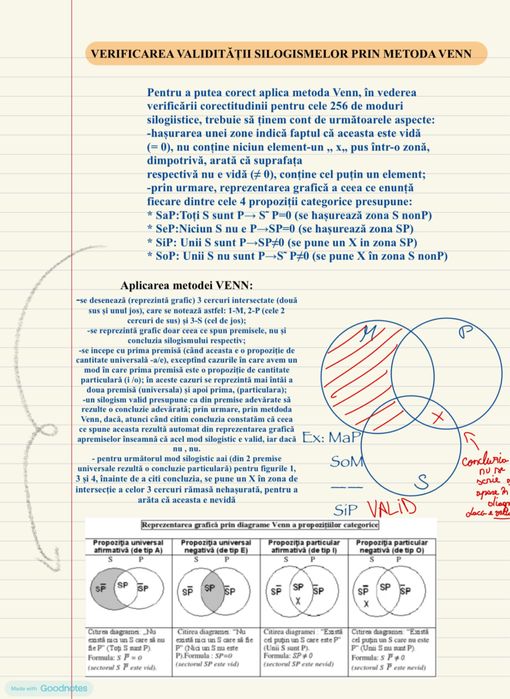 VERIFICAREA VALIDITĂȚII SILOGISMELOR PRIN METODA VENN
Pentru a putea corect aplica metoda Venn, în vederea
verificării corectitudinii pentru cele 256 de moduri
silogiistice, trebuie să ținem cont de următoarele aspecte:
-hașurarea unei zone indică faptul că aceasta este vidă
(= 0), nu conține niciun element-un ,, x,, pus într-o zonă,
dimpotrivă, arată că suprafața
respectivă nu e vidă (≠ 0), conține cel puțin un element;
-prin urmare, reprezentarea grafică a ceea ce enunță
fiecare dintre cele 4 propoziții categorice presupune:
* SaP:Toți S sunt P→ S¯ P=0 (se hașurează zona S nonP)
* SeP:Niciun S nu e P→SP=0 (se hașurează zona SP)
* SiP: Unii S sunt P→SP≠0 (se pune un X in zona SP)
* SoP: Unii S nu sunt P→S¯ P≠0 (se pune X în zona S nonP)
Aplicarea metodei VENN:
-se desenează (reprezintă grafic) 3 cercuri intersectate (două
sus și unul jos), care se notează astfel: 1-M, 2-P (cele 2
cercuri de sus) și 3-S (cel de jos);
-se reprezintă grafic doar ceea ce spun premisele, nu și
concluzia silogismului respectiv;
-se incepe cu prima premisă (când aceasta e o propoziție de
cantitate universală -a/e), exceptînd cazurile în care avem un
mod în care prima premisă este o propoziție de cantitate
particulară (i /o); în aceste cazuri se reprezintă mai întâi a
doua premisă (universala) și apoi prima, (particulara);
-un silogism valid presupune ca din premise adevărate să
rezulte o concluzie adevărată; prin urmare, prin metdoda
Venn, dacă, atunci când citim concluzia constatăm că ceea
ce spune aceasta rezultă automat din reprezentarea grafică
apremiselor înseamnă că acel mod silogistic e valid, iar dacă
nu , nu.
- pentru următorul mod silogistic aai (din 2 premise
universale rezultă o concluzie particulară) pentru figurile 1,
3 și 4, înainte de a citi concluzia, se pune un X în zona de
intersecție a celor 3 cercuri rămasă nehașurată, pentru a
arăta că aceasta e nevidă
M
P
X
S
Ex: MaP
SoM
SiP VALID
Concluzia
nu se
scrie
apare în
diagr
daca e
Reprezentarea grafică prin diagrame Venn a propozițiilor categorice
Propoziția universal afirmativă (de tip A)
Propoziția universal negativă (de tip E)
Propoziția particular afirmativă (de tip I)
Propoziția particular negativă (de tip O)
S P
S P
S P
S P
SP̅ SP S̅P
SP̅ SP S̅P
SP̅ SP S̅P
X
SP̅ SP S̅P
X
Citirea diagramei: „Nu există nici un S care să nu fie P" (Toți S sunt P).
Formula: S P̅ = 0
(sectorul S P̅ este vid).
Citirea diagramei: "Nu există nici un S care să fie P" (Nici un S nu este P).Formula: SP=0
(sectorul SP este vid)
Citirea diagramei: "Există cel puțin un S care este P" (Unii S sunt P).
Formula: SP ≠ 0
(sectorul SP este nevid)
Citirea diagramei: "Există cel puțin un S care nu este P" (Unii S nu sunt P)
Formula: S P̅ ≠ 0
(sectorul S P̅ este nevid)
Made with Goodnotes